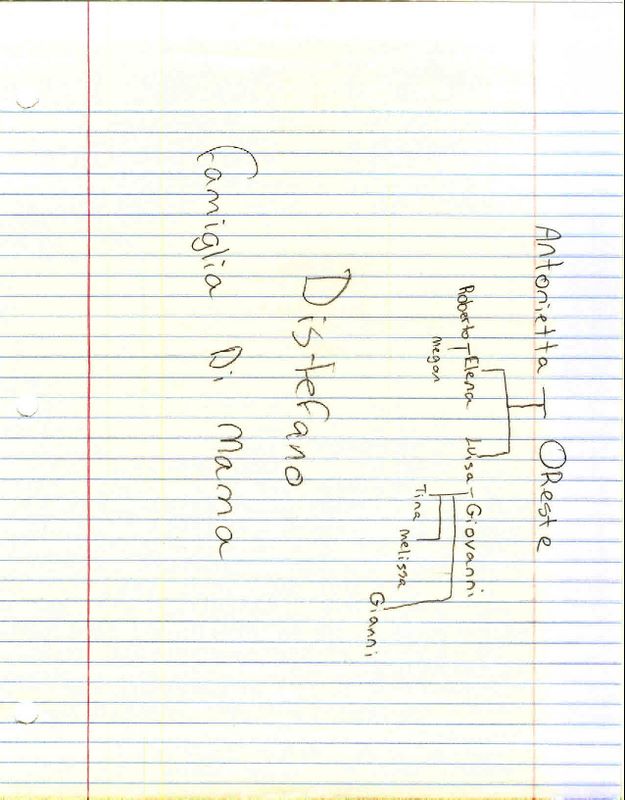 Antonietta Oreste
Roberto Elena Luisa Giovanni
megan
Tina melissa
Gianni
Distefano
Famiglia Di Mama